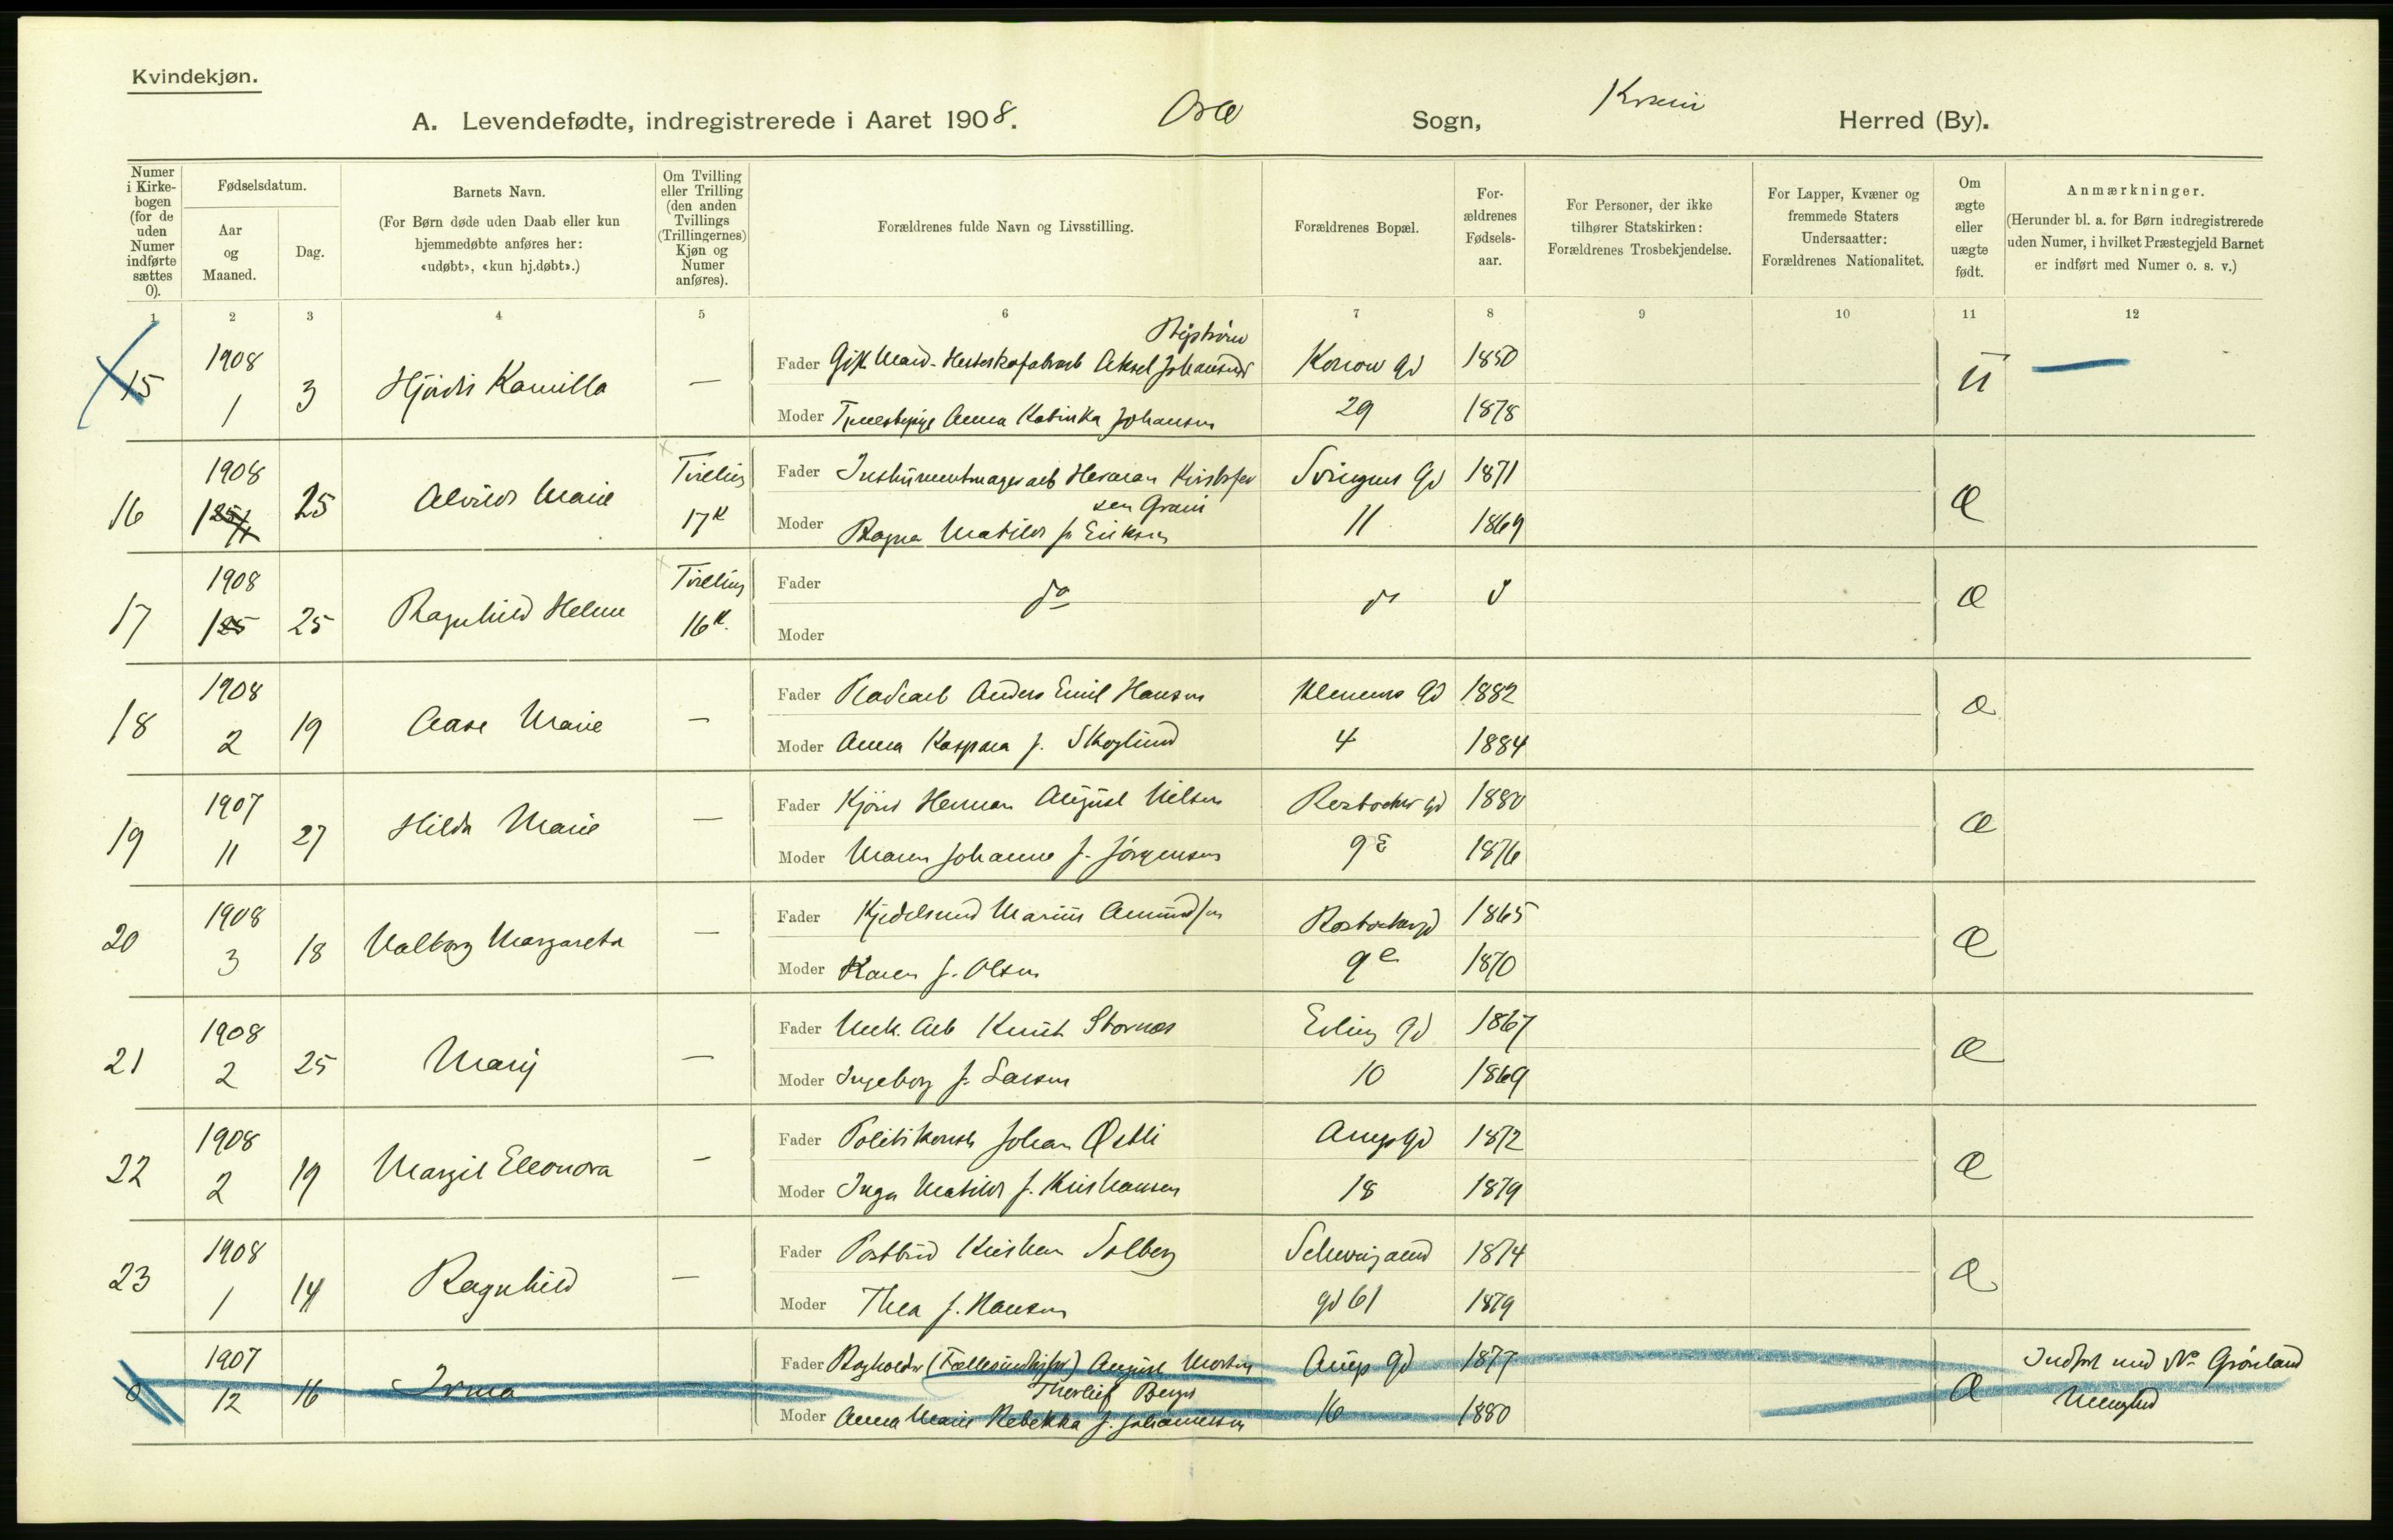 Kvindekjøn.
A. Levendefødte, indregistrerede i Aaret 1908. Oslo Sogn, Herred (By).
Numer i Kirkebogen (for de uden Numer indførte sættes 0).
Fødselsdatum.
Aar og Maaned.
Dag.
Barnets Navn.
(For Børn døde uden Daab eller kun hjemmedøbte anføres her: «udøbt», «kun hj.døbt».)
Om Tvilling eller Trilling (den anden Tvillings (Trillingernes) Kjøn og Numer anføres).
Forældrenes fulde Navn og Livsstilling.
Forældrenes Bopæl.
Forældrenes Fødselsaar.
For Personer, der ikke tilhører Statskirken: Forældrenes Trosbekjendelse.
For Lapper, Kvæner og fremmede Staters Undersaatter: Forældrenes Nationalitet.
Om ægte eller uægte født.
Anmærkninger.
(Herunder bl. a. for Børn indregistrerede uden Numer, i hvilket Præstegjeld Barnet er indført med Numer o. s. v.)
1 2 3 4 5 6 7 8 9 10 11 12
15 1908 1 3 Hjördis Kamilla —
Fader Gift Mand Aksel Johansen Konow Gd 1850 U —
Moder Tjenestepige Anna Katinka Johansen 29 1878
16 1908 1 25 Alvilde Marie Tvilling 17 K
Fader Instrumentmagerarb Herman Kristofersen Grani 11 1871 Æ
Moder Ragna Matilde f. Eriksen 1869
17 1908 1 25 Ragnhild Helene Tvilling 16 K.
Fader do do d Æ
Moder
18 1908 2 19 Aase Marie —
Fader Anders Emil Hansen Klemens Gd 1882 Æ
Moder Anna Kaspara f. Skoglund 4 1884
19 1907 11 27 Hilda Marie —
Fader Herman August Nilsen Rostocker gd 1880 Æ
Moder Maren Johanne f. Jörgensen 9 E 1876
20 1908 3 18 Valborg Margareta —
Fader Kjedelsmed Marius Amundsen Rostockergd 1865 Æ
Moder Karen f. Olsen 9 e 1870
21 1908 2 25 Mary —
Fader Mek. Arb Knut Stornes Erling Gd 1867 Æ
Moder Ingeborg f. Larsen 10 1869
22 1908 2 19 Margit Eleonora —
Fader Politikonst. Johan Østli Arups Gd 1872 Æ
Moder Inga Matilde f. Kristiansen 18 1879
23 1908 1 14 Ragnhild —
Fader Postbud Kristian Solberg Schweigaard 1874 Æ
Moder Thea f. Hansen gd 61 1879
0 1907 12 16 Irma
Fader Bogholder August Morten Thorleif Berger Arups Gd 1877 Æ Indført med No Grönland
Moder Anna Marie Rebekka f. Johannessen 16 1880